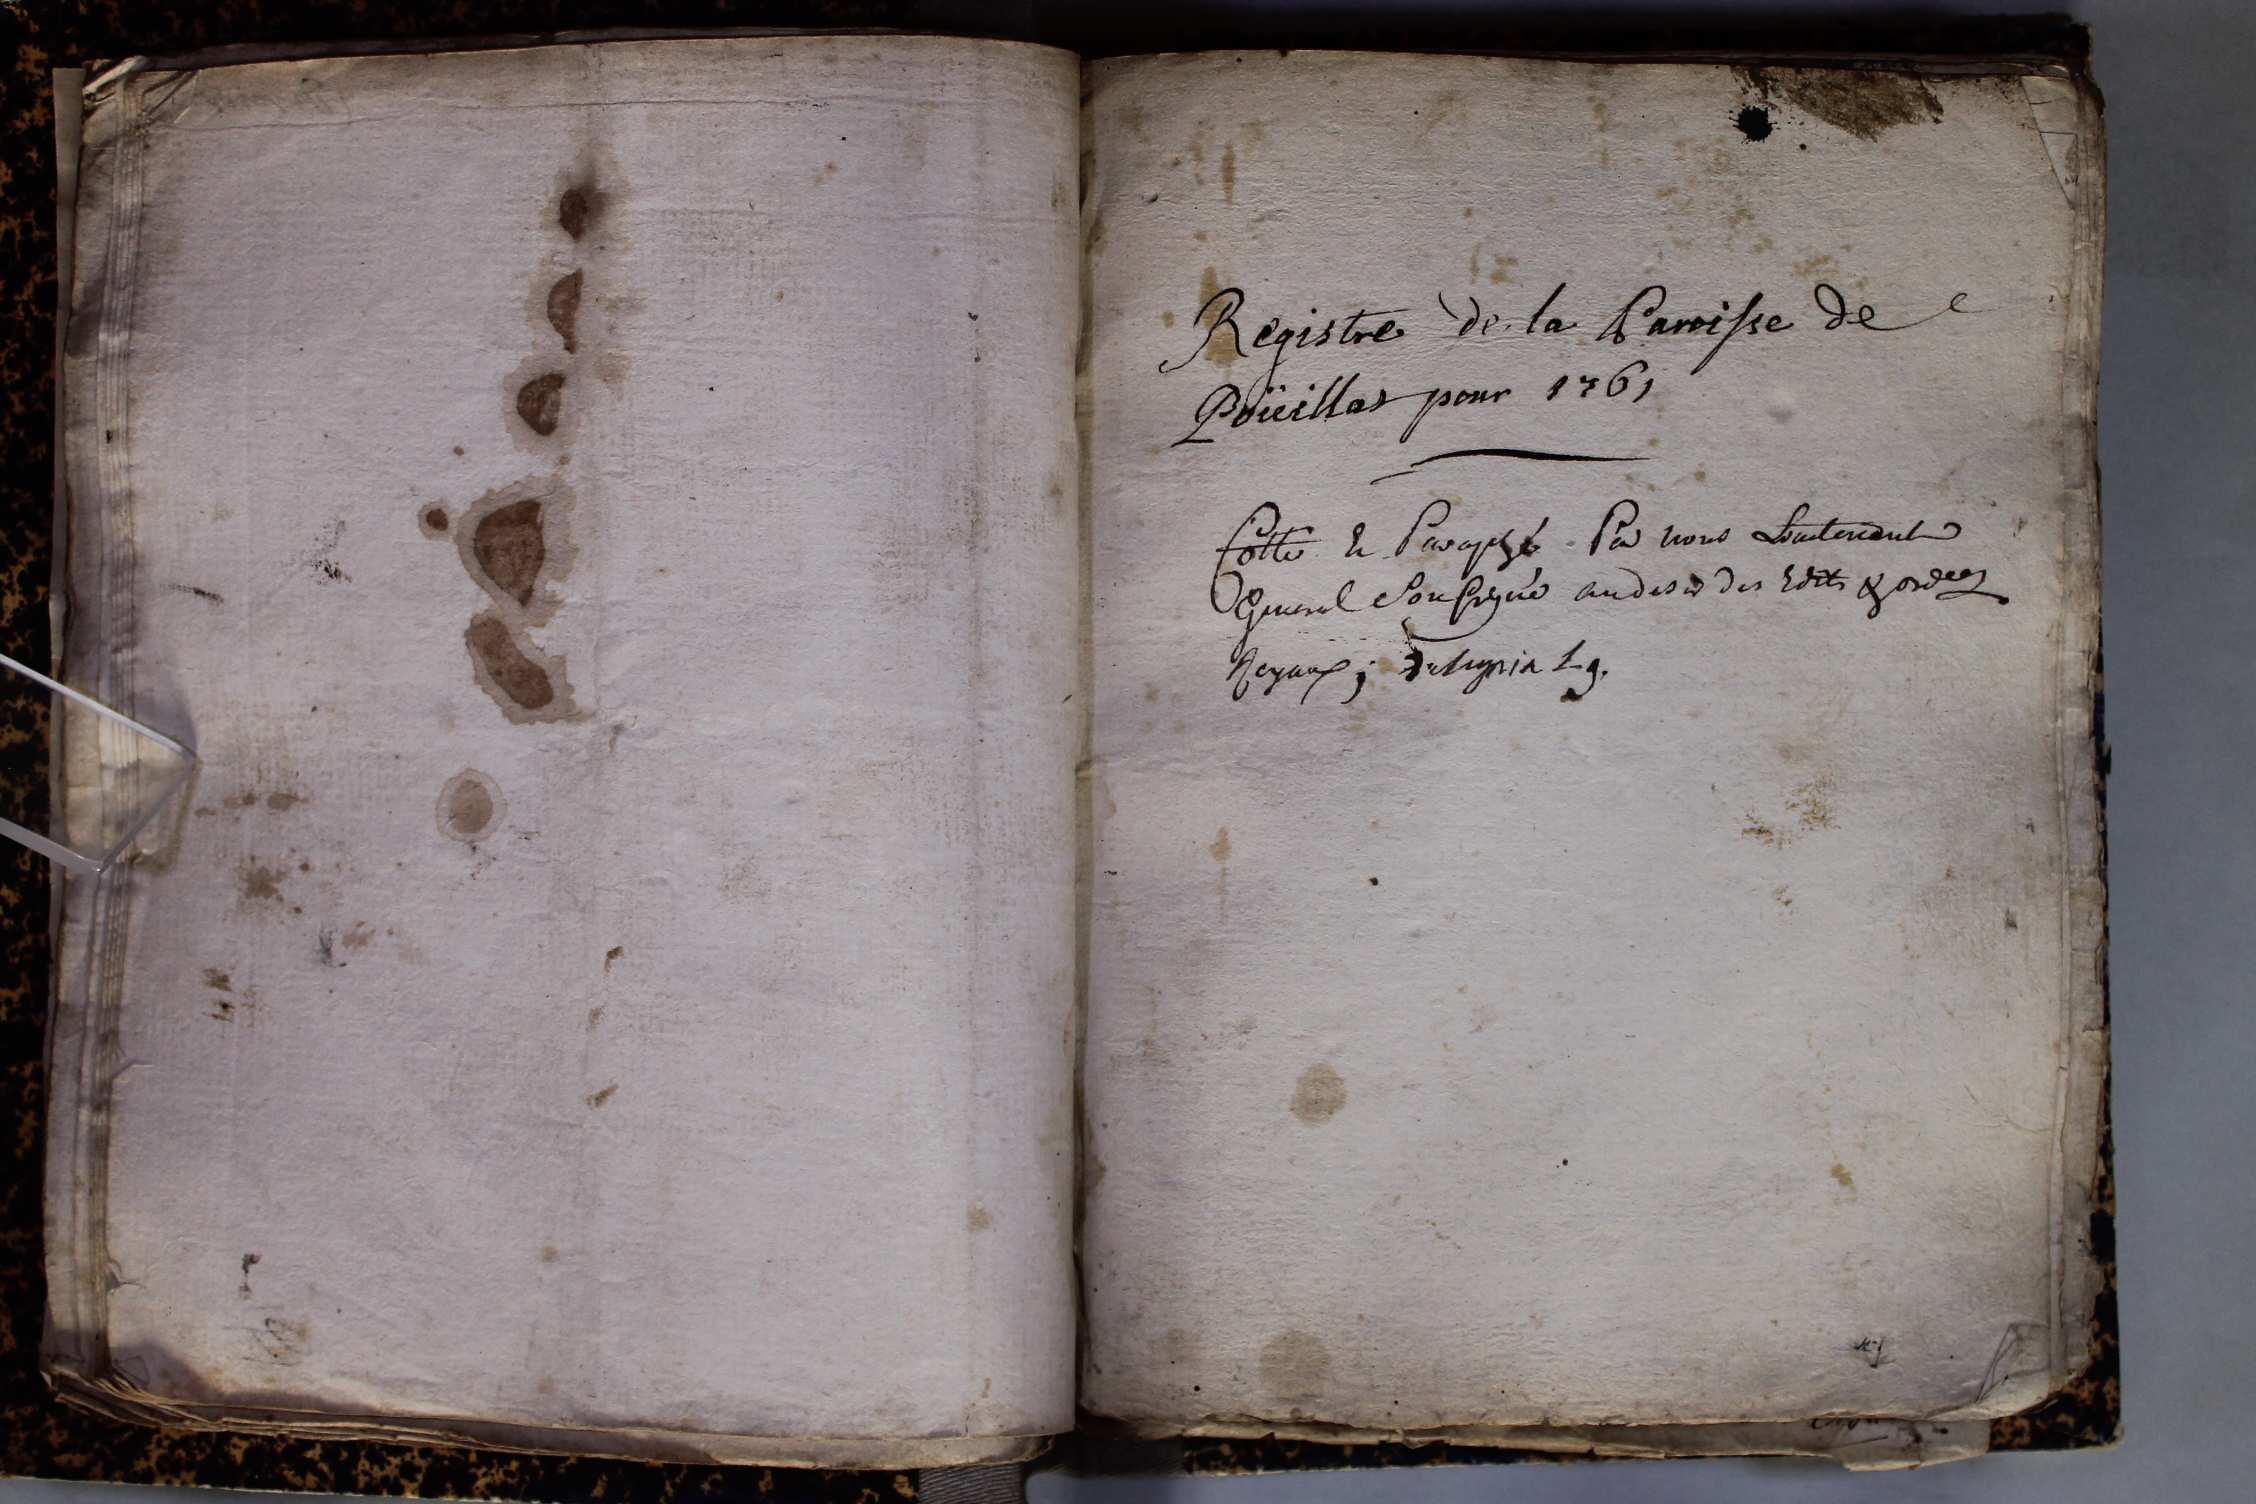 Registre de la Paroisse de
Poüillas pour 1761
Cotté & Paraphé Par nous Lieutenant
General Soussigné au desir des Edits & ordces
Royaux;